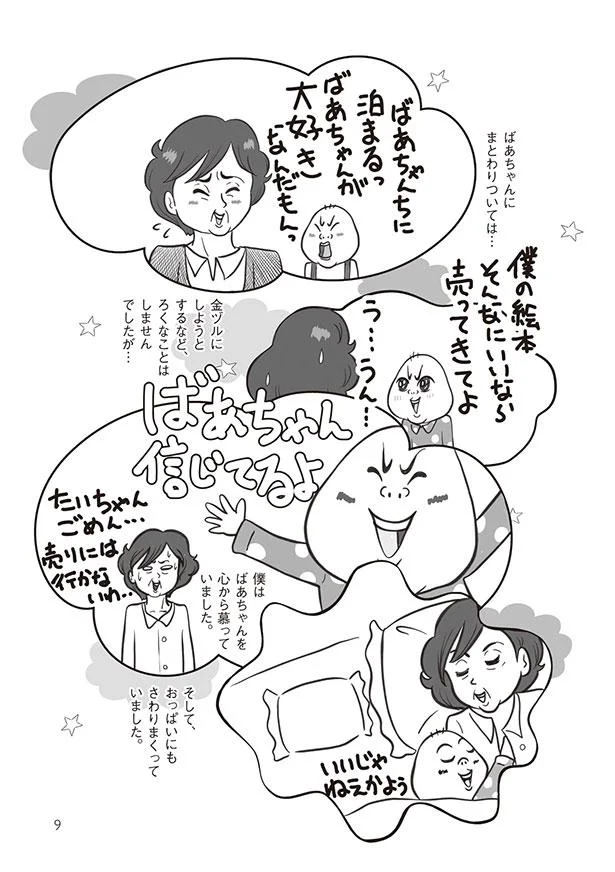 ばあちゃんに
まとわりついては…
ばあちゃんちに
泊まるっ
ばあちゃんが
大好き
なんだもんっ
僕の絵本
そんなにいいなら
売ってきてよ
う…うん…
金ヅルに
しようと
するなど、
ろくなことは
しません
でしたが…
ばあちゃん
信じてるよ
たいちゃん
ごめん…
売りには
行かな
いわ…
僕は
ばあちゃんを
心から慕って
いました。
いいじゃ
ねえかよう
そして、
おっぱいにも
さわりまくって
いました。
9